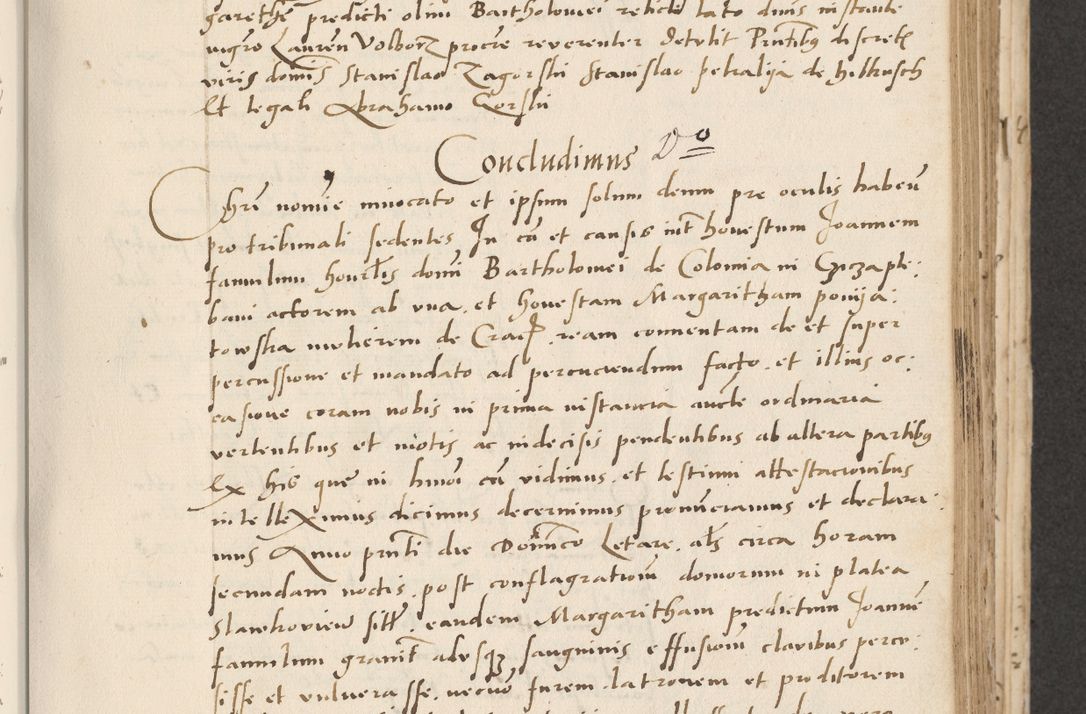 garethe predicti olim Bartholomei relicta lato dnis instante
nigro Lauren Volborz procre reverenter detulit Pntibus discretis
viris dominis Stanislao Zagorski Stanislao petralija de hilkusch
Et legali Abrahamo Gorski
Concludimus Do
Chri nomie invocato et ipsum solum deum pre oculis habeñ
pro tribunali sedentes In cã et causis int honestum Joannem
famulum hourlis domi Bartholomei de Colomia in Czczapli:
bani actorem ab una et honestam Margaritham ponija:
towska mulierem de Crac ream conventam de et super
percussione et mandato ad percuciendum facto et illius oc:
casione coram nobis in prima instancia aucte ordinaria
vertentibus et motis ac indecisis pendentibus ab altera partibus
Ex his que in hmoi cã vidimus et testium attestacionibus
intelleximus dicimus decernimus pronunciamus et declara:
mus Anno pnti die Dominico Letare als circa horam
secundam noctis post conflagrationem domorum in platea
Slawkoview sitt eandem Margaritham predictum Joanne
famulum gravit adusque sanguinis effusionem clavibus percu:
sisse et vulnerasse necnon furem latronem et proditorem